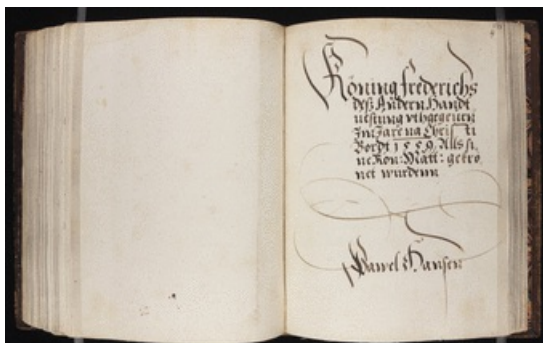 Köning frederichs
deß Andern Handt
uestung vthgegeuen
Im Jare na Christi
Bordt 1559. Alls si
ne Kon: Matt: gekrö
net wurdenn
Pawel Hansen